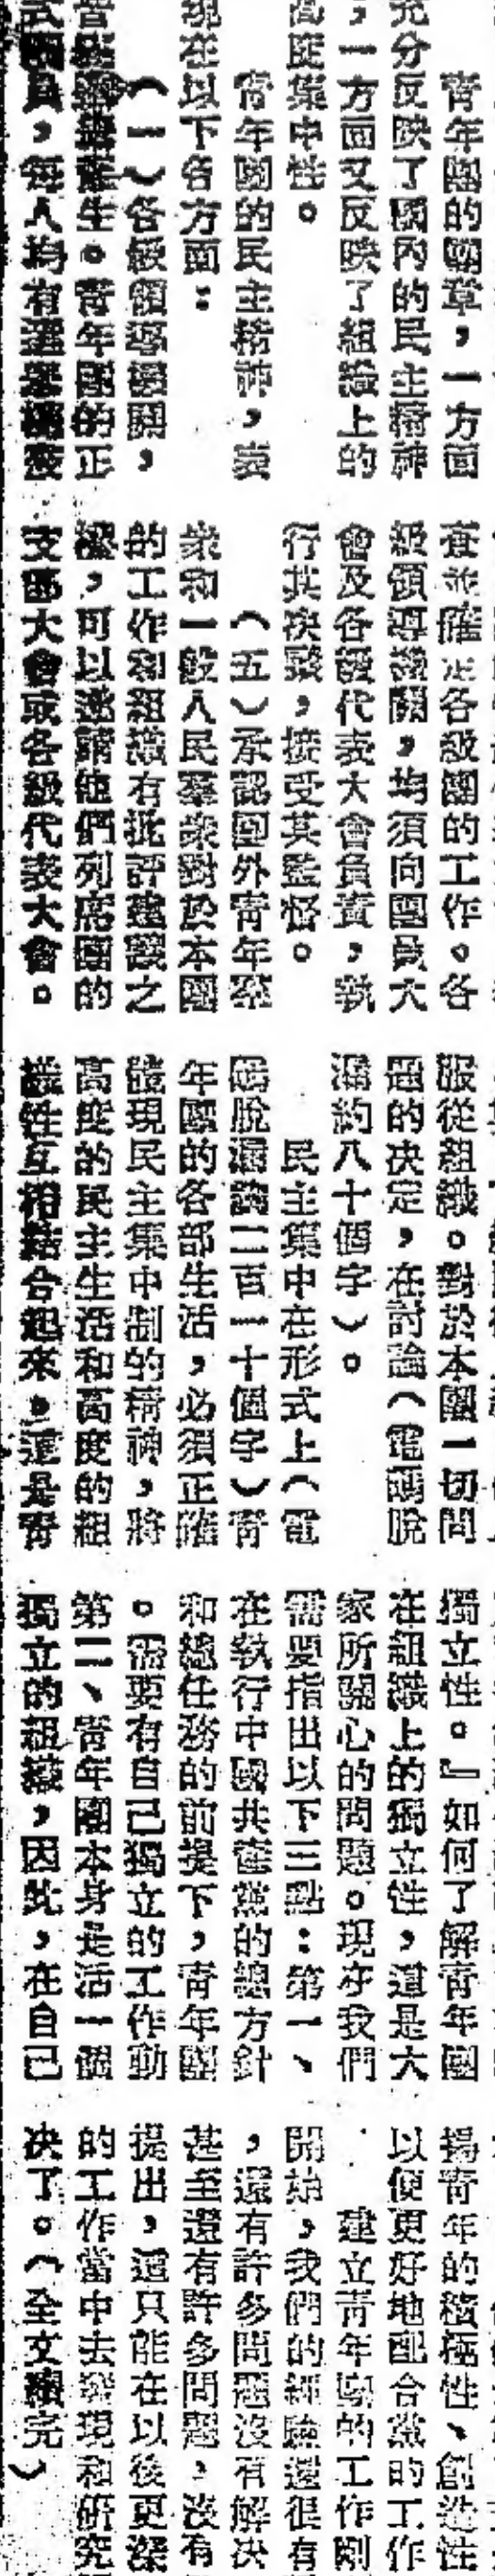 青年團的團章，一方面
充分反映了團內的民主精神
，一方面又反映了組織上的
高度集中性。
青年團的民主精神，表
現在以下各方面：
（一）各級領導機關，
皆由選舉產生。青年團的正
式團員，每人均有選舉權發
查並確定各級團的工作。各
級領導機關，均須向團員大
會及各級代表大會負責，執
行其決議，接受其監督。
（五）承認團外青年羣
衆和一般人民羣衆對於本團
的工作和組織有批評建議之
權，可以邀請他們列席團的
支部大會或各級代表大會。
服從組織。對於本團一切問
題的决定，在討論（電碼脫
漏約八十個字）。
民主集中在形式上（電
碼脫漏論二百一十個字）青
年團的各部生活，必須正確
體現民主集中制的精神，將
高度的民主生活和高度的組
織性互相結合起來，這是青
獨立性。』如何了解青年團
在組織上的獨立性，這是大
家所關心的問題。現在我們
需要指出以下三點：第一、
在執行中國共產黨的總方針
和總任務的前提下，青年團
。需要有自己獨立的工作動
第二、青年團本身是活一個
獨立的組織，因此，在自己
揚青年的積極性、創造性
以便更好地配合黨的工作
建立青年團的工作剛
開始，我們的經驗還很有
，還有許多問題沒有解决
甚至還有許多問題，沒有
提出，這只能在以後更深
的工作當中去發現和研究
决了。（全文續完）